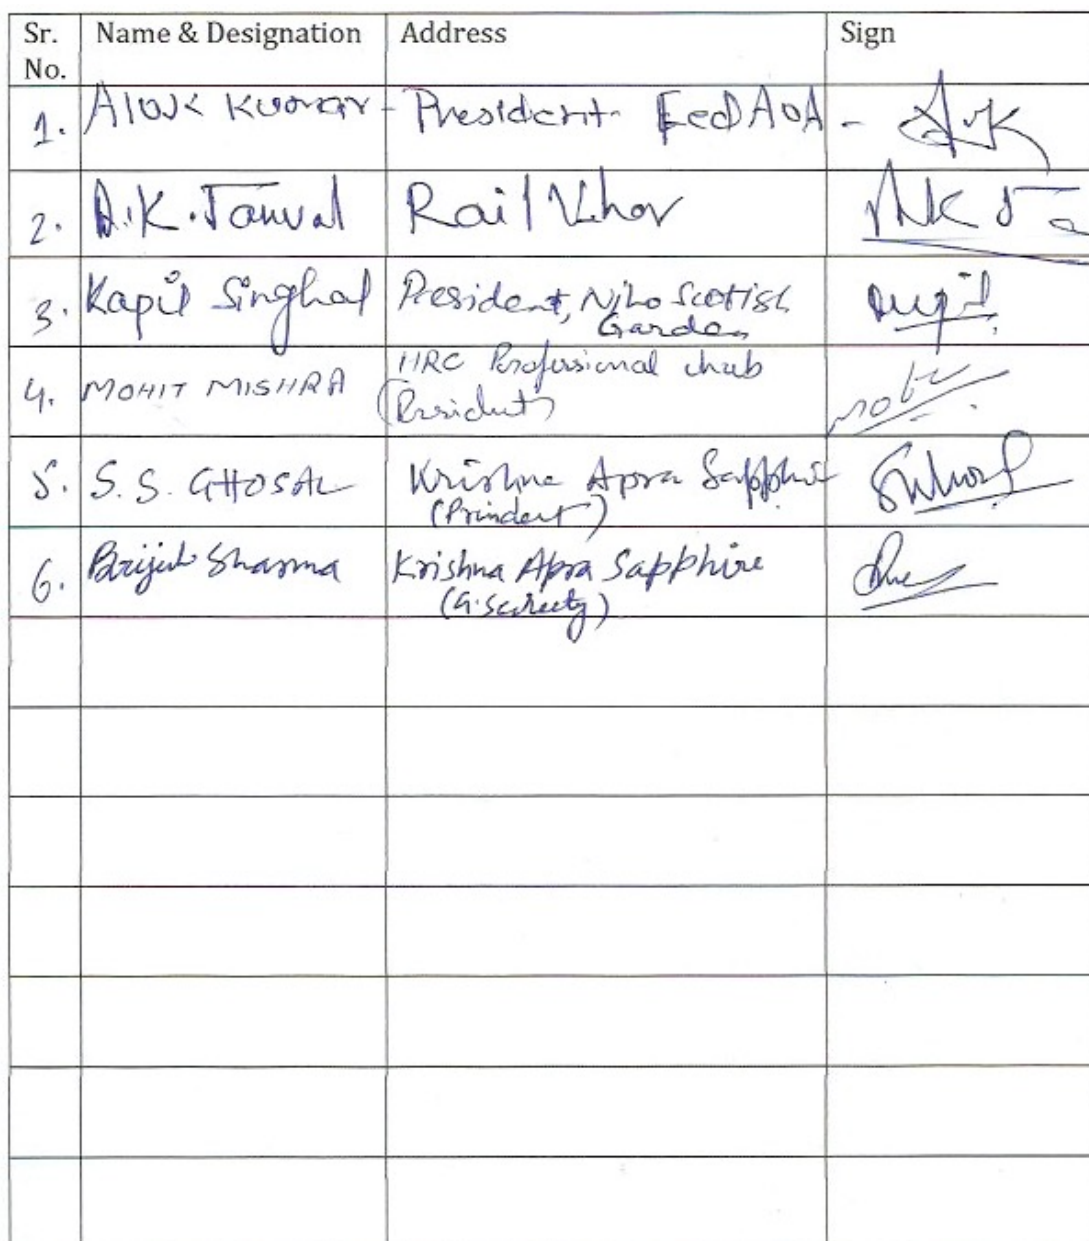 Sr. No. Name & Designation Address Sign
1. Alok Kumar - President - Fed AOA -
2. A.K. Tanwal Rail Vihar
3. Kapil Singhal President, Niho Scottish
Garden
4. MOHIT MISHRA HRC Professional
(President)
5. S. S. GHOSAL Krishna Apra Sapphire
(President)
6. Brijesh Sharma Krishna Apra Sapphire
(G. Secretary)